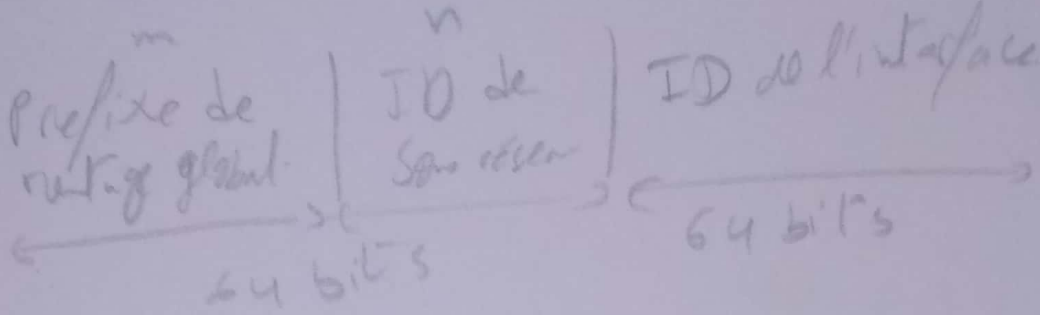 m
n
Prefixe de
routage global
ID de
Sous réseau
ID de l'interface
64 bits
64 bits